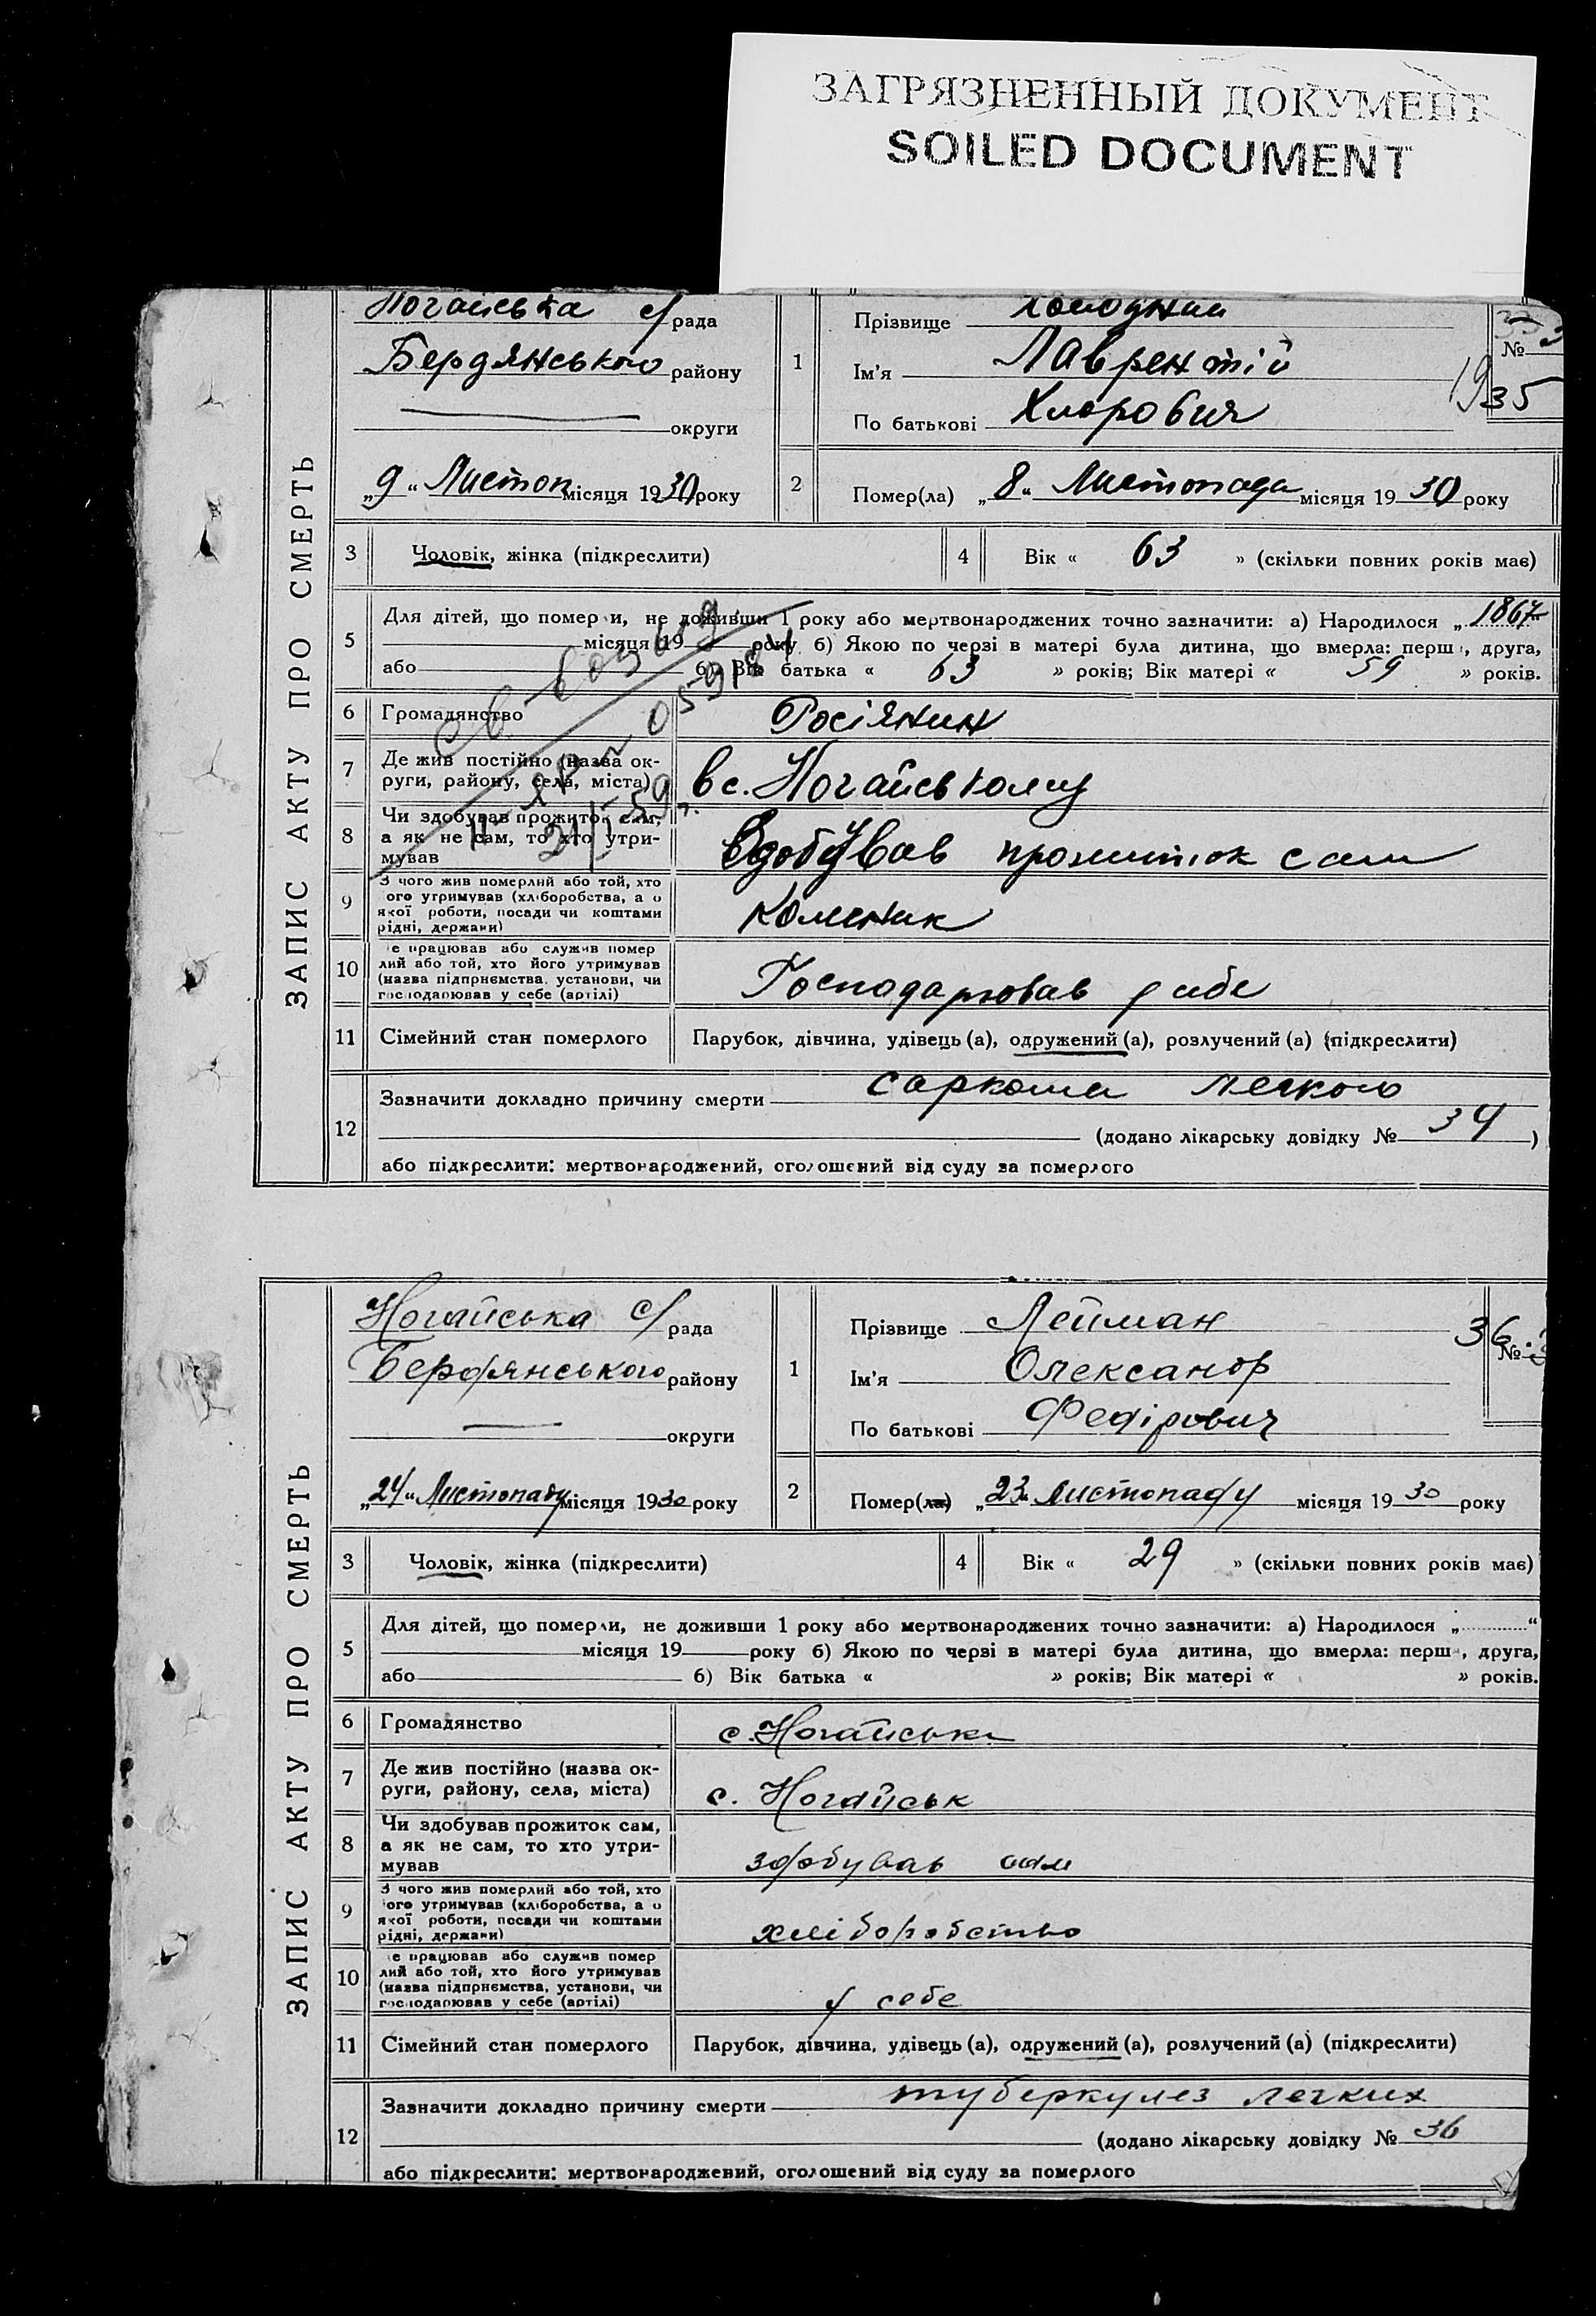 ЗАГРЯЗНЕННЫЙ ДОКУМЕНТ
SOILED DOCUMENT
ЗАПИС АКТУ ПРО СМЕРТЬ
Ногайська с/рада
Бердянського району
округи
„9“ Листоп місяця 1930 року
1
Прізвище
Ім'я Лаврентій
По батькові
№
1935
2
Помер(ла) „8“ Листопада місяця 1930 року
3
Чоловік, жінка (підкреслити)
4
Вік « 63 » (скільки повних років має)
5
Для дітей, що помер и, не доживши 1 року або мертвонароджених точно зазначити: а) Народилося „ 1867
місяця 19 року б) Якою по черзі в матері була дитина, що вмерла: перш , друга,
або 6) Вік батька « 63 » років; Вік матері « 59 » років.
6
Громадянство Росіянин
7
Де жив постійно (назва ок-
руги, району, села, міста)
в с. Ногайському
8
Чи здобував прожиток сам,
а як не сам, то хто утри-
мував
Здобував прожиток сам
9
З чого жив померлий або той, хто
ого утримував (хліборобства, а о
якої роботи, посади чи коштами
рідні, держави)
10
е працював або служив помер
лий або той, хто його утримував
(назва підприємства, установи, чи
господарював у себе (артілі)
Господарював у себе
11
Сімейний стан померлого
Парубок, дівчина, удівець (а), одружений (а), розлучений (а) (підкреслити)
12
Зазначити докладно причину смерти саркома легкого
(додано лікарську довідку № 34)
або підкреслити: мертвонароджений, оголошений від суду за померлого
ЗАПИС АКТУ ПРО СМЕРТЬ
Ногайська с/рада
Бердянського району
округи
„24“ Листопаду місяця 1930 року
1
Прізвище Лейман
Ім'я Олександр
По батькові Федірович
36
№
2
Помер(ла) „23“ Листопаду місяця 1930 року
3
Чоловік, жінка (підкреслити)
4
Вік « 29 » (скільки повних років має)
5
Для дітей, що померли, не доживши 1 року або мертвонароджених точно зазначити: а) Народилося „ “
місяця 19 року б) Якою по черзі в матері була дитина, що вмерла: перш , друга,
або 6) Вік батька « » років; Вік матері « » років.
6
Громадянство с. Ногайська
7
Де жив постійно (назва ок-
руги, району, села, міста)
с. Ногайськ
8
Чи здобував прожиток сам,
а як не сам, то хто утри-
мував
здобував сам
9
З чого жив померлий або той, хто
ого утримував (хліборобства, а о
якої роботи, посади чи коштами
рідні, держави)
хліборобство
10
е працював або служив помер
лий або той, хто його утримував
(назва підприємства, установи, чи
господарював у себе (артілі)
у себе
11
Сімейний стан померлого
Парубок, дівчина, удівець (а), одружений (а), розлучений (а) (підкреслити)
12
Зазначити докладно причину смерти туберкулез легких
(додано лікарську довідку № 36
або підкреслити: мертвонароджений, оголошений від суду за померлого